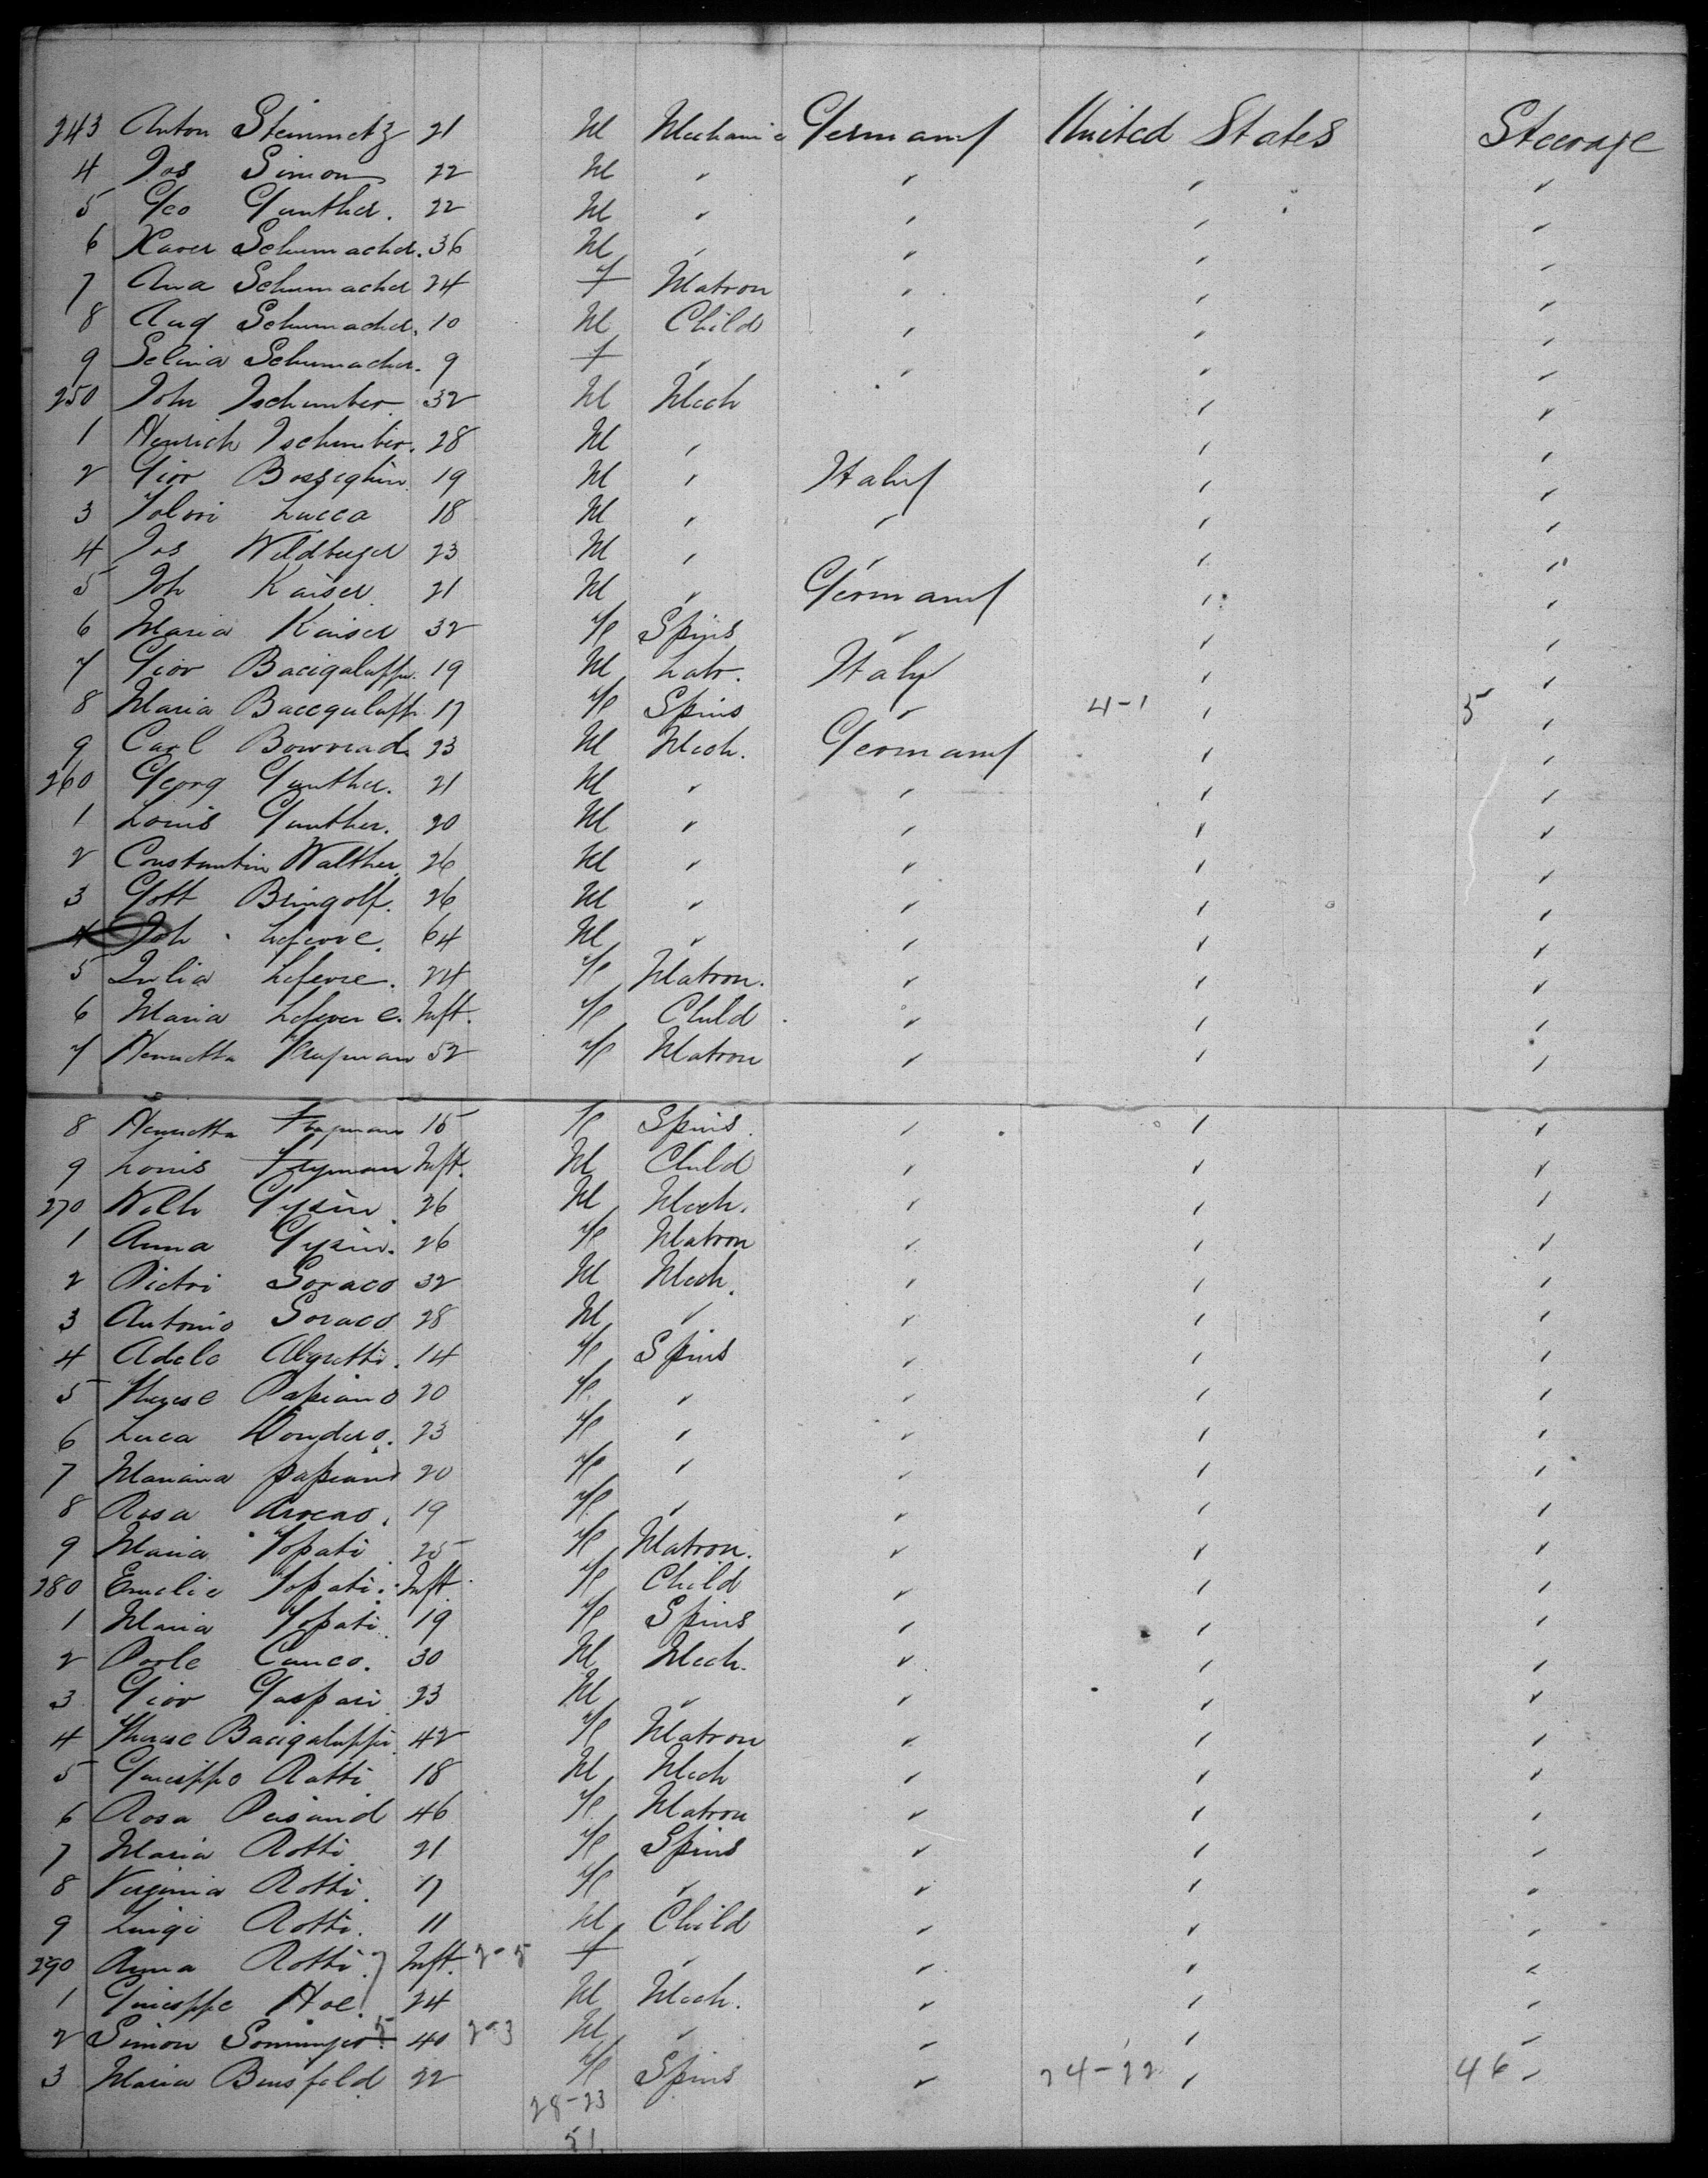 243 Anton Steinmetz 21 M Mechanic Germany United States Steerage
4 Jos Simon 22 M " " " "
5 Geo Gunther. 22 M " " " "
6 Xaver Schumacher. 36 M " " " "
7 Ana Schumacher 24 f Matron " " "
8 Aug Schumacher. 10 M Child " " "
9 Selina Schumacher. 9 f " " " "
250 John Tschumber. 32 M Mech " "
1 Henrich Tschumber. 28 M " " "
2 Giov 19 M " Italy " "
3 Lucca 18 M " " " "
4 Jos Wildberger 23 M " " " "
5 Joh Kaiser 21 M " Germany " "
6 Maria Kaiser 32 F Spins " " "
7 Giov Bacigaluppi. 19 M Labr. Italy " "
8 Maria 17 F Spins " 4-1 " 5 "
9 Carl 23 M Mech. Germany " "
260 Georg Gunther. 21 M " " " "
1 Louis Gunther. 20 M " " " "
2 Constantin Walther 26 M " " " "
3 Gott Bringolf. 26 M " " " "
4 Joh Lefevre. 64 M " " " "
5 Julia Lefevre. 24 F Matron. " " "
6 Maria Lefevre. Inft. F Child " " "
7 Henrietta 52 F Matron " " "
8 Henrietta 15 F Spins. " " "
9 Louis Inft. M Child " " "
270 Wilh Gysin. 26 M Mech. " " "
1 Anna Gysin. 26 F Matron " " "
2 Pietri Soraco 32 M Mech. " " "
3 Antonio Soraco 28 M " " " "
4 Adele 14 F Spins " " "
5 Therese Papiano 20 F " " " "
6 Luca Dondero. 23 F " " " "
7 Mariana papiano 20 F " " " "
8 Rosa 19 F " " " "
9 Maria Topati 25 F Matron. " " "
280 Emelie Topati. Inft. F Child " " "
1 Maria Topati 19 F Spins " " "
2 Cuneo. 30 M Mech. " " "
3 Giov Gaspari 23 M " " " "
4 Therese Bacigaluppi 42 F Matron " " "
5 Guiseppo Ratti 18 M Mech " " "
6 Rosa 46 F Matron " " "
7 Maria Rotti 21 F Spins " " "
8 Virginia Rotti. 17 F " " " "
9 Luigi Rotti. 11 M Child " " "
290 Anna Rotti. Inft. 2-5 f " " " "
1 Guiseppe 24 M Mech. " " "
2 Simon 40 2-3 M " " " "
3 Maria Bensfeld 22 F Spins " 24-22 " 46 "
28-23
51